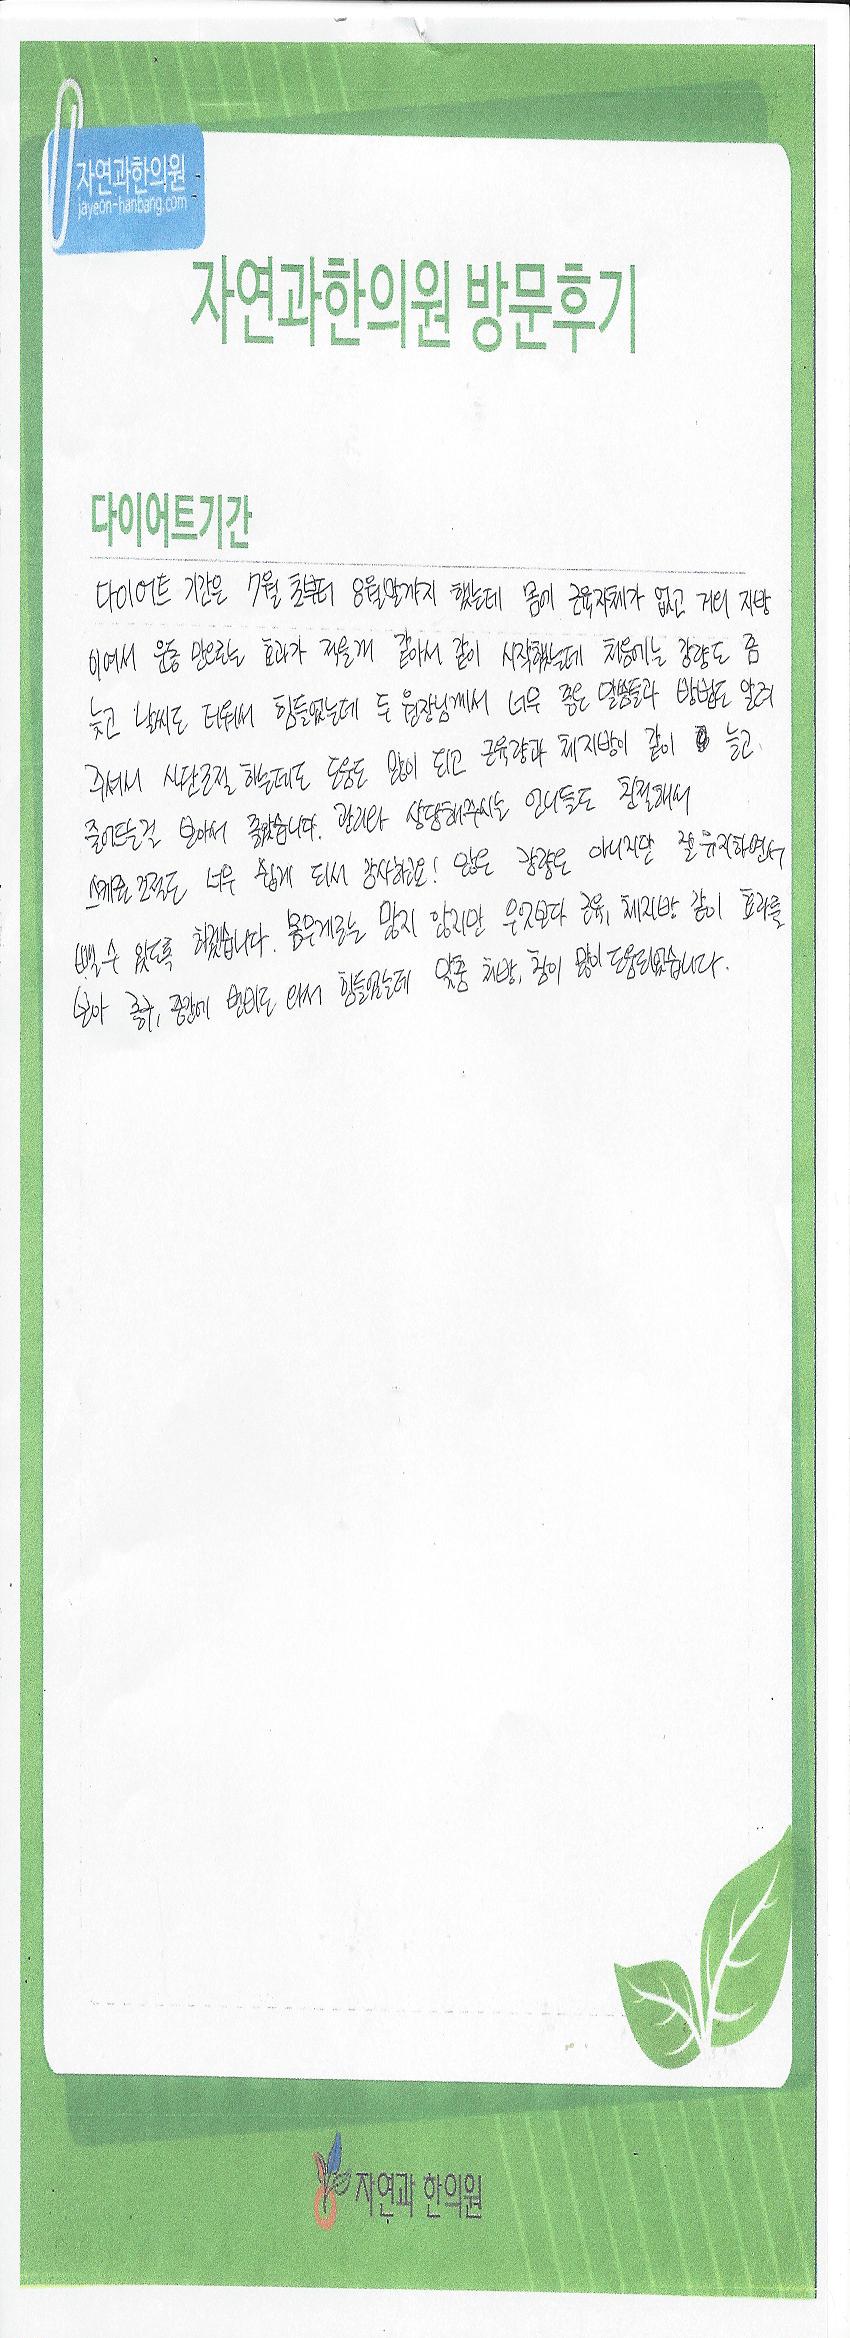 자연과한의원
jayeon-hanbang.com
자연과한의원 방문후기
다이어트기간
다이어트 기간은 7월 초부터 8월말까지 했는데 몸에 근육자체가 없고 거의 지방
이여서 운동 만으로는 효과가 적을게 같아서 같이 시작했는데 처음에는 감량도 좀
늦고 날씨도 더워서 힘들었는데 두 원장님께서 너무 좋은 말씀들과 방법도 알려
주셔서 식단조절 하는데도 도움도 많이 되고 근육량과 체지방이 같이 늘고
줄어드는걸 보아서 좋았습니다. 관리와 상담해주시는 언니들도 친절해서
스케줄 조절도 너무 쉽게 되서 감사하고요! 많은 감량은 아니지만 잘 유지하면서
뺄 수 있도록 하겠습니다. 몸무게로는 많지 않지만 무엇보다 근육, 체지방 같이 효과를
보아 좋구, 중간에 변비도 와서 힘들었는데 맞춤 처방, 침이 많이 도움되었습니다.
자연과 한의원